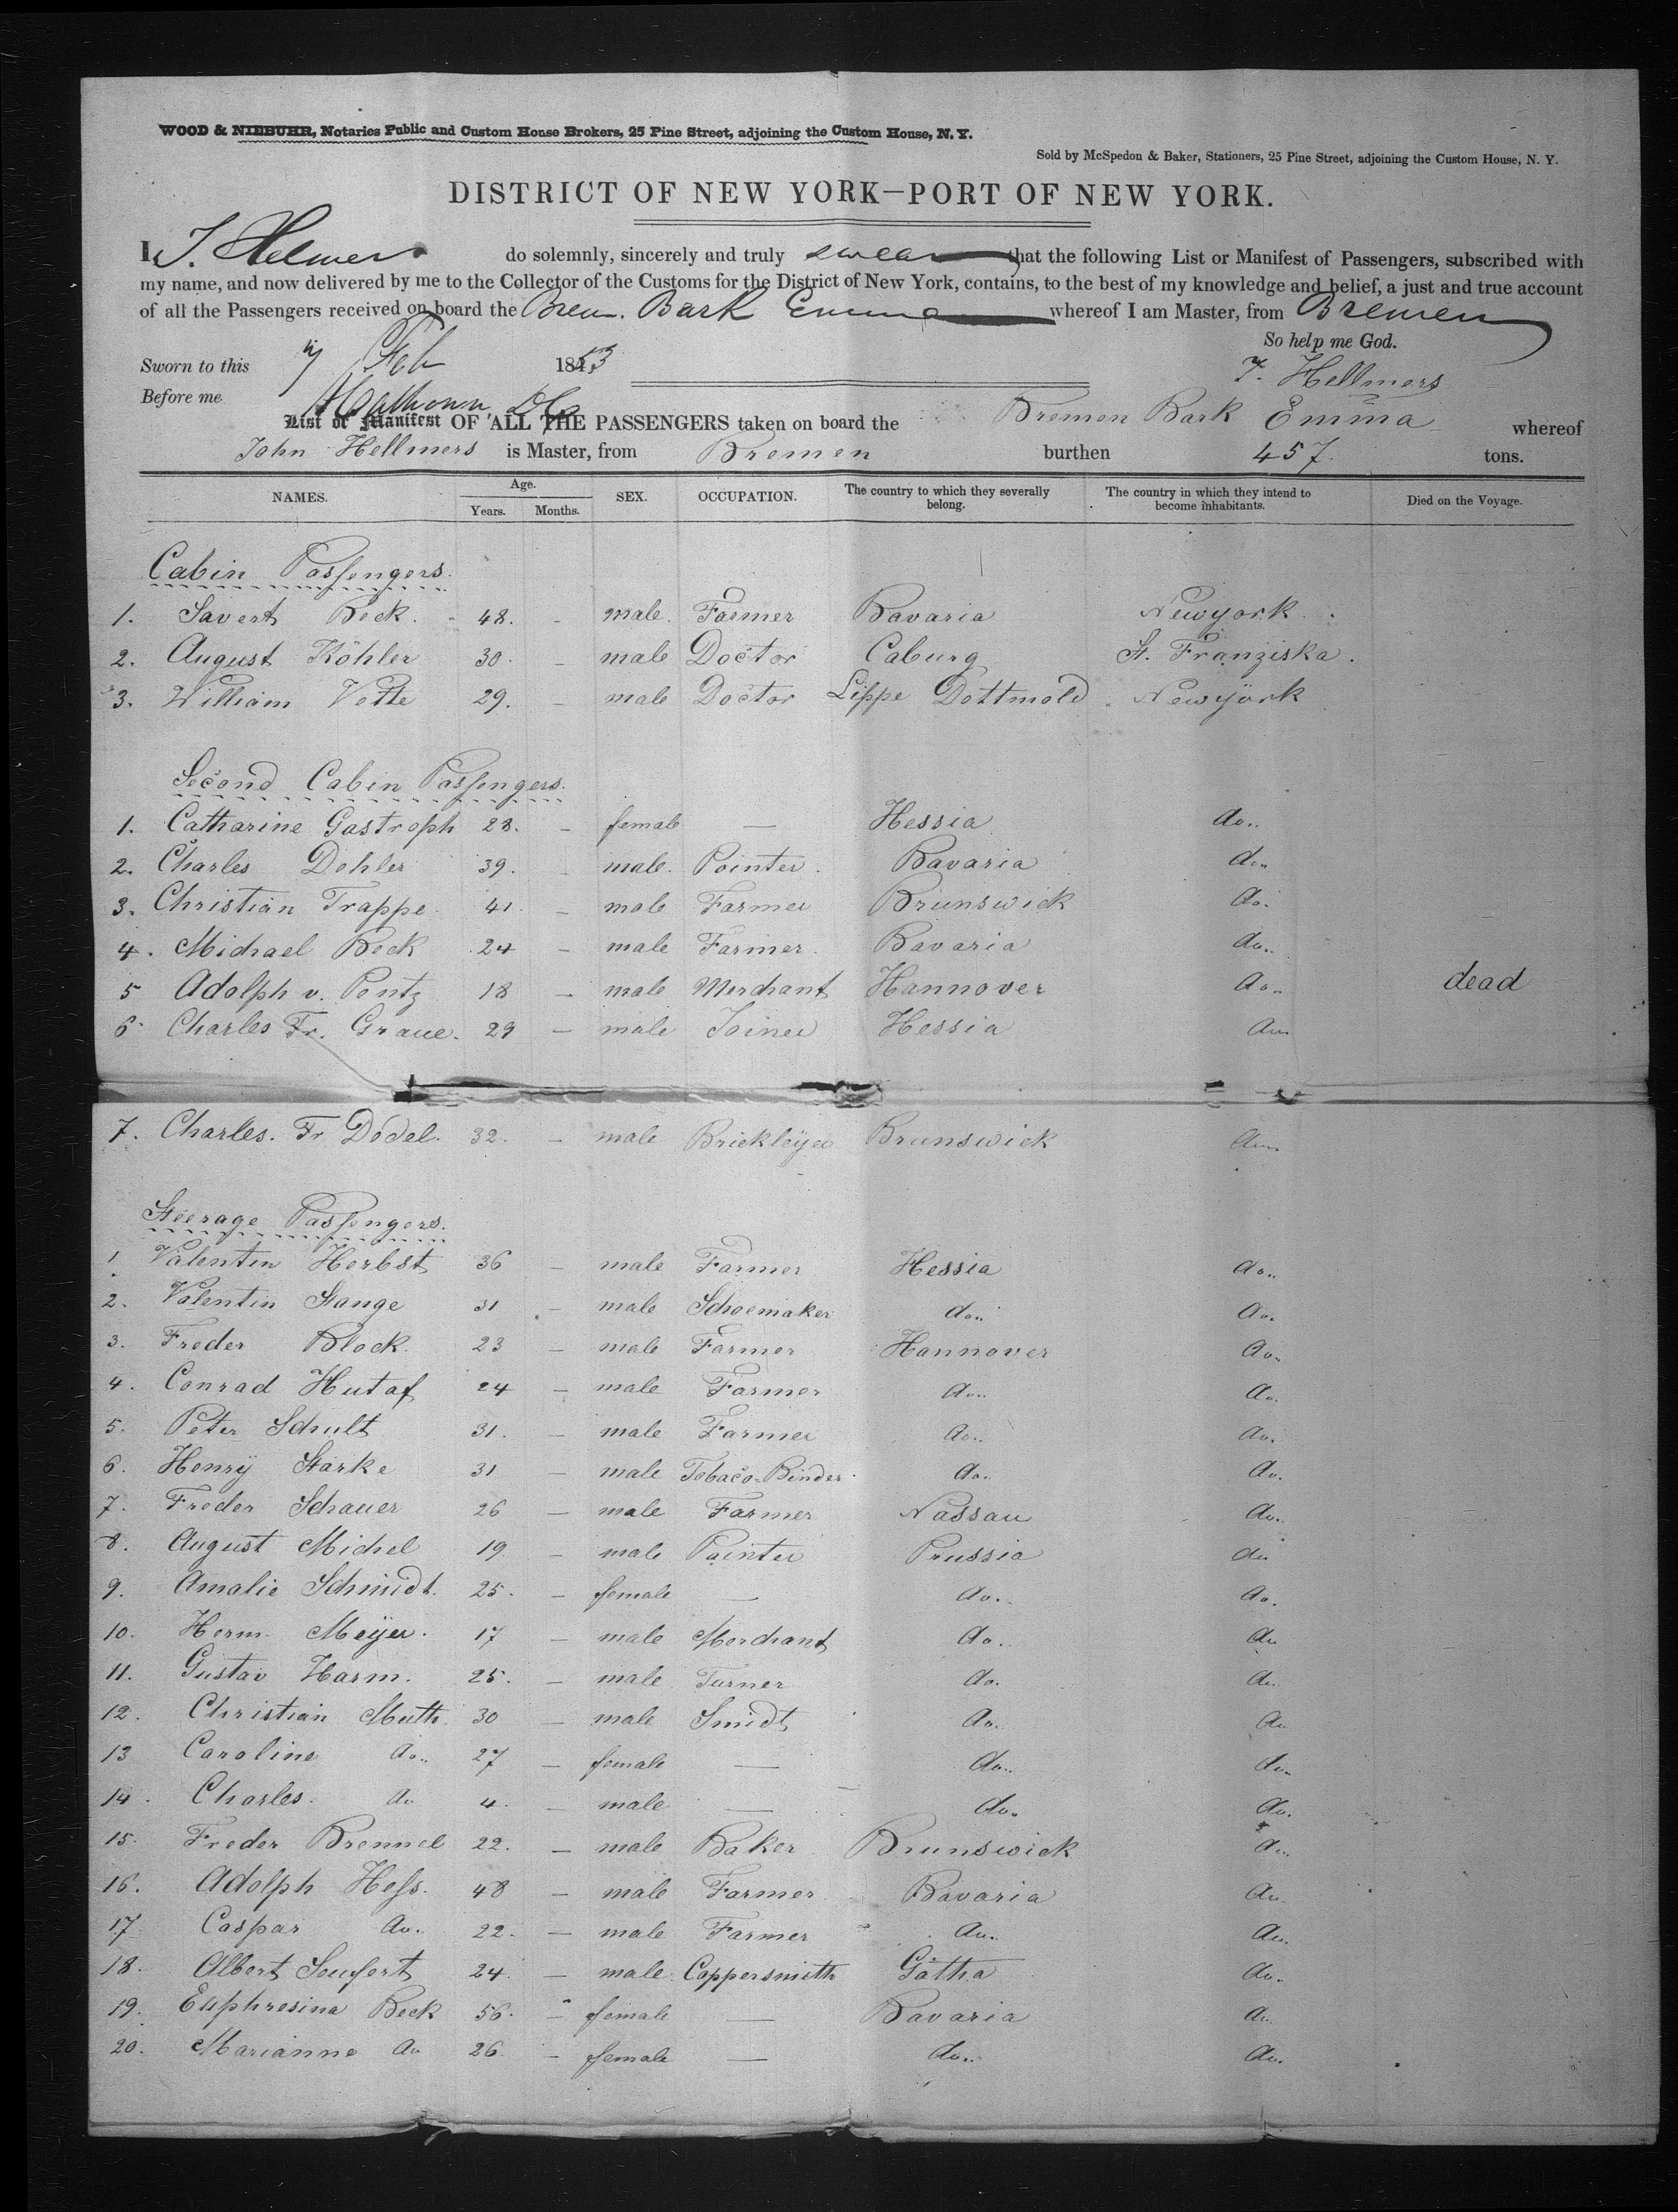 WOOD & NIEBUHR, Notaries Public and Custom House Brokers, 25 Pine Street, adjoining the Custom House, N. Y.
Sold by McSpedon & Baker, Stationers, 25 Pine Street, adjoining the Custom House, N. Y.
DISTRICT OF NEW YORK—PORT OF NEW YORK.
I, J. Helmers do solemnly, sincerely and truly swear that the following List or Manifest of Passengers, subscribed with
my name, and now delivered by me to the Collector of the Customs for the District of New York, contains, to the best of my knowledge and belief, a just and true account
of all the Passengers received on board the Brem. Bark Emma whereof I am Master, from Bremen
So help me God.
Sworn to this 7 Feb 1853
J. Hellmers
Before me
List or Manifest OF ALL THE PASSENGERS taken on board the Bremen Bark Emma whereof
John Hellmers is Master, from Bremen burthen 457. tons.
NAMES. Age. Years. Months. SEX. OCCUPATION. The country to which they severally belong. The country in which they intend to become inhabitants. Died on the Voyage.
Cabin Passengers.
1. Savert Beck. 48. - male. Farmer Bavaria Newyork.
2. August Köhler 30. - male Doctor Caburg St. Franziska.
3. William Votte 29. - male Doctor Lippe Dettmold Newÿork
Second Cabin Passengers.
1. Catharine Gastroph 28. - female — Hessia do..
2. Charles Dohler 39. - male. Pointer. Bavaria do..
3. Christian Trappe. 41. - male Farmer Brunswick do.
4. Michael Beck 24 - male Farmer. Bavaria do..
5 Adolph v. Pentz 18 - male Merchant Hannover do.. dead
6. Charles Fr. Graue. 29 - male Joiner Hessia do.
7. Charles. Fr Dödel. 32. - male Brickleÿer Brunswick do.
Steerage Passengers.
1. Valentin Herbst 36 - male Farmer Hessia do..
2. Valentin Stange 31 - male Schoemaker do.. do.
3. Freder Block. 23 - male Farmer Hannover do.
4. Conrad Hutaf 24 - male Farmer do.. do.
5. Peter Schult 31. - male Farmer do.. do.
6. Henrÿ Starke 31 - male Tobaco-Binder. do. do.
7. Freder Schauer 26 - male Farmer Nassau do..
8. August Michel 19 - male Painter Prussia do
9. Amalie Schmidt. 25. - female — do.. do.
10. Herm. Meÿer. 17 - male Merchant do. do
11. Gustav Harm. 25. - male Turner do. do.
12. Christian Muth. 30 - male Smidt do. do
13 Caroline do.. 27 - female — do.. do..
14. Charles. do 4. - male — do.. do.
15. Freder Brennel 22. - male Baker Brunswick do.
16. Adolph Heſs. 48 - male Farmer Bavaria do.
17 Caspar do.. 22. - male Farmer do.. do.
18. Albert Seufert 24. - male Coppersmith Gotha do.
19. Euphresina Beck 56. - female — Bavaria do.
20. Marianne do 26. - female — do.. do.